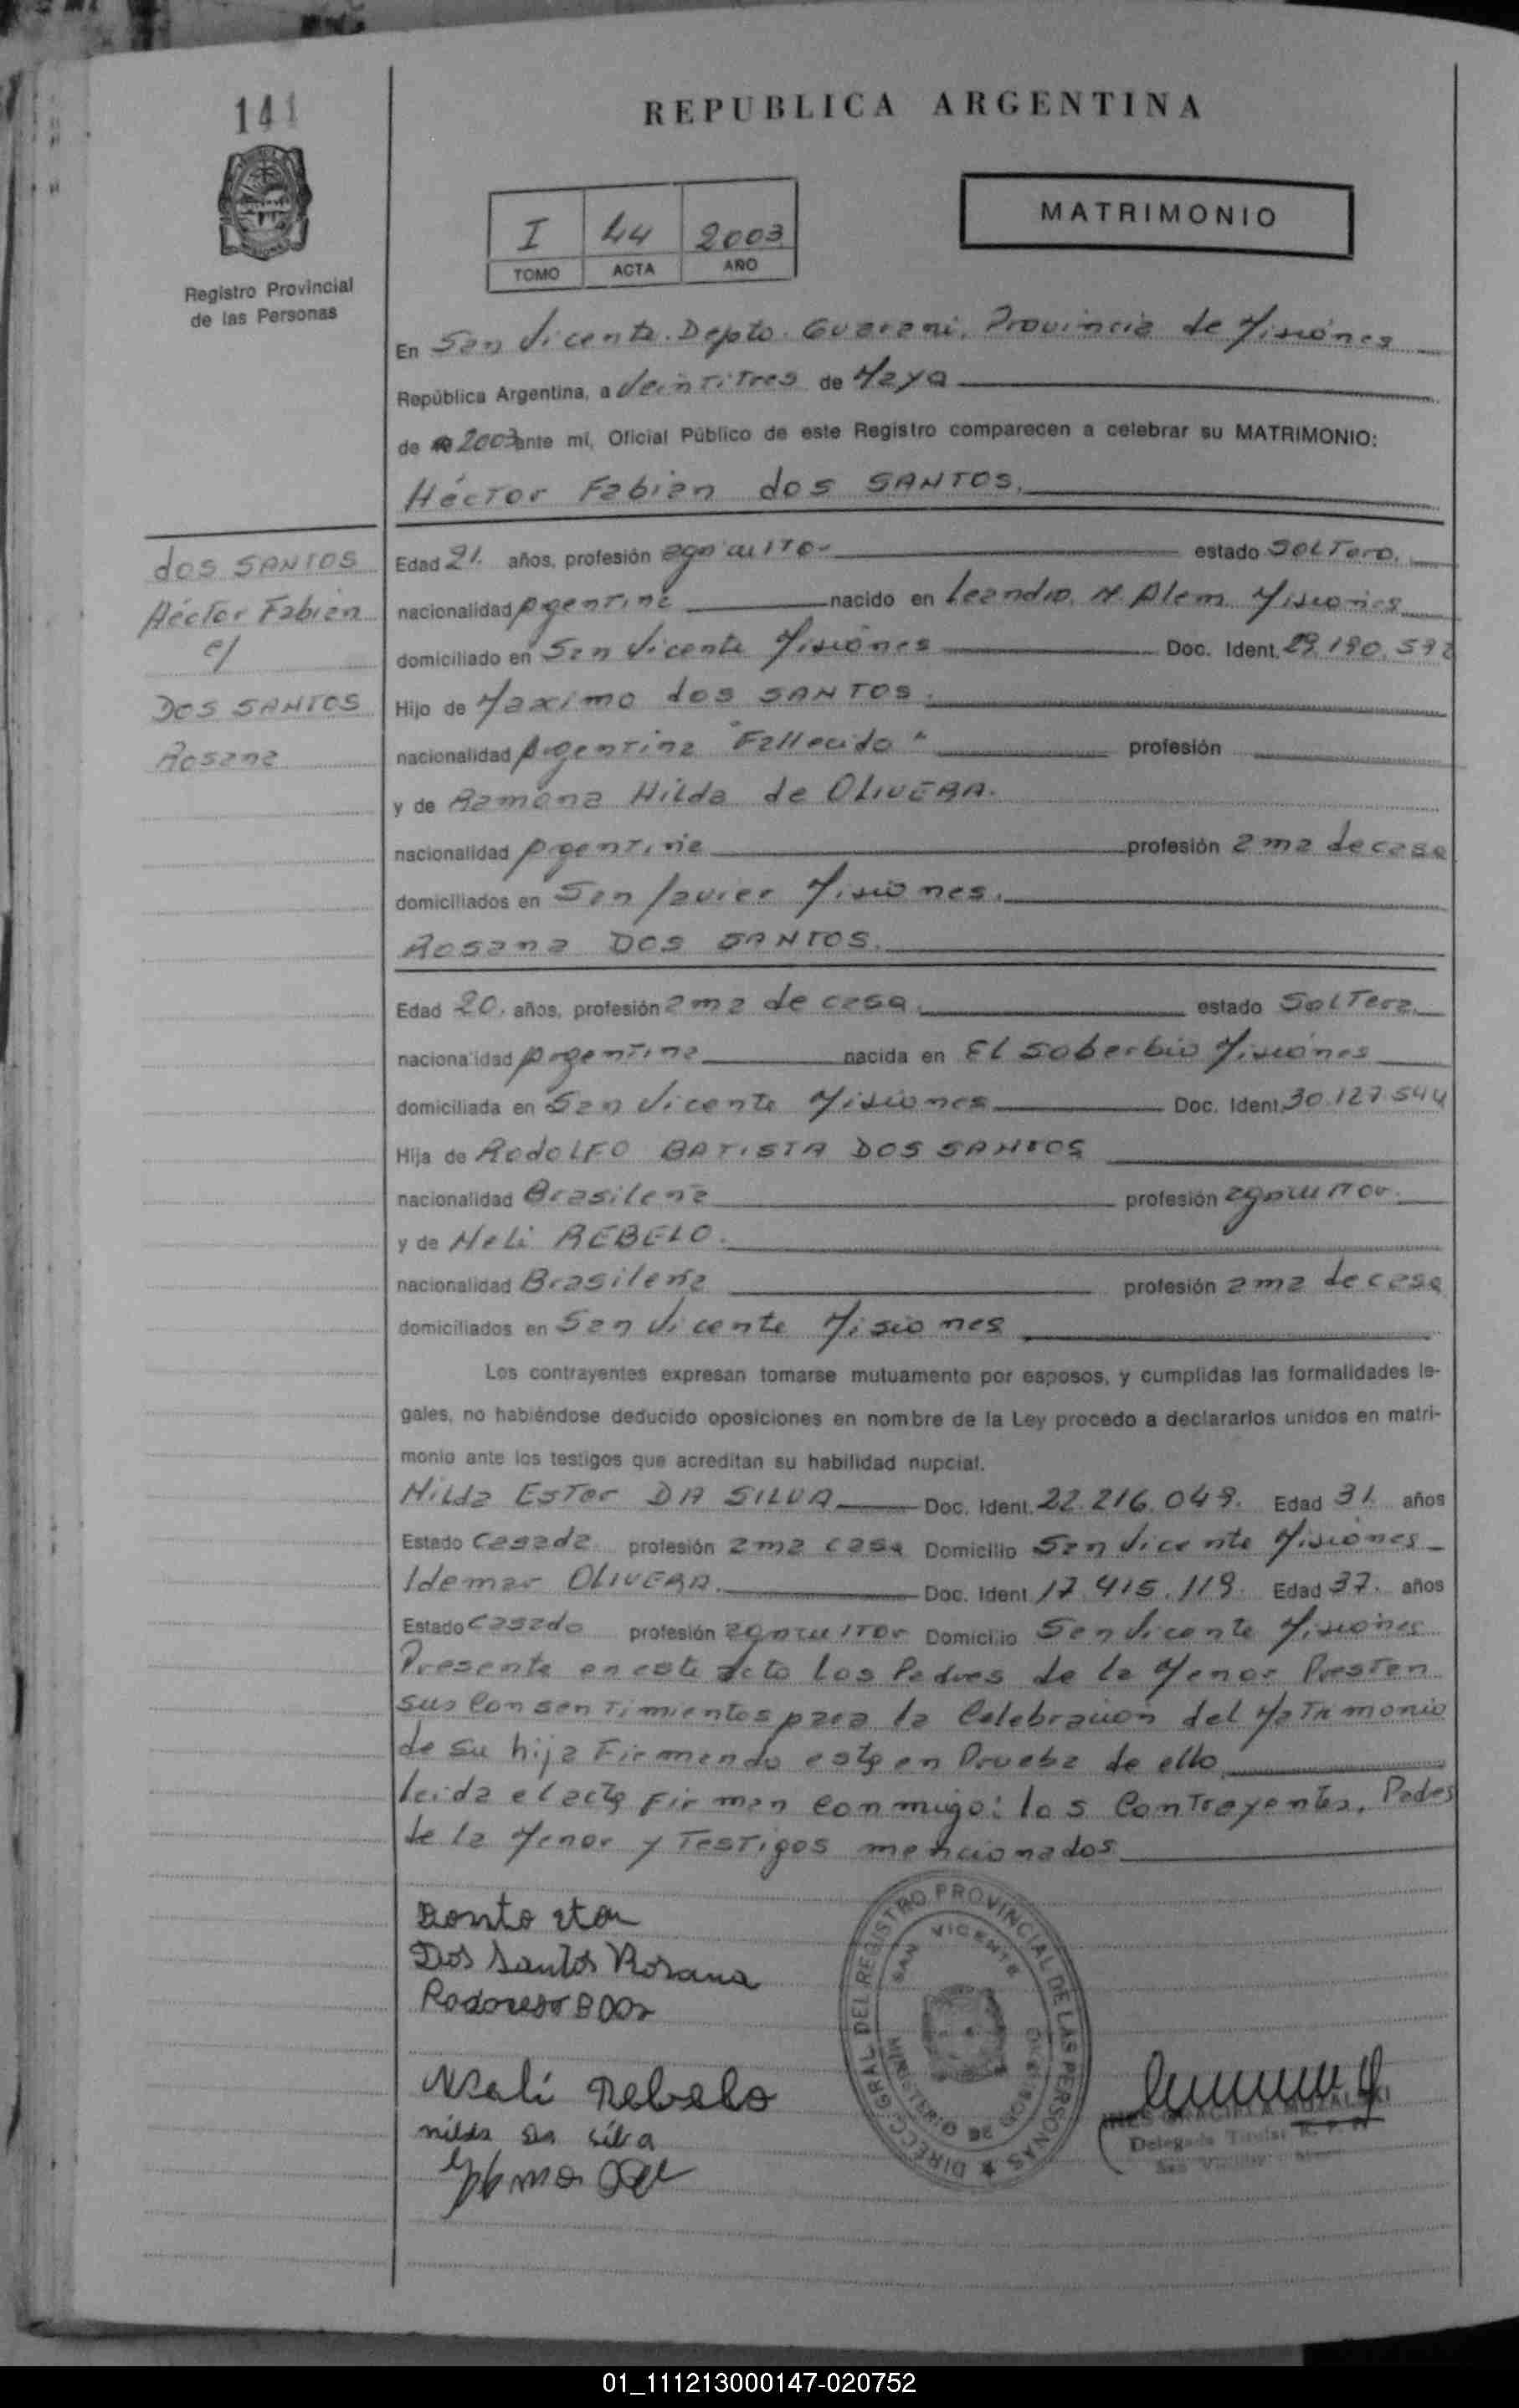 141
REPUBLICA ARGENTINA
MATRIMONIO
I 44 2003
TOMO ACTA AÑO
Registro Provincial
de las Personas
En San Vicente. Depto. Guarani, Provincia de Misiónes
República Argentina, a Veintitres de Mayo
de 2003 ante mí, Oficial Público de este Registro comparecen a celebrar su MATRIMONIO:
Héctor Fabian dos SANTOS.
dos SANTOS
Héctor Fabian
c/
DOS SANTOS
Rosana
Edad 21. años, profesión agricultor estado Soltero.
nacionalidad Argentina nacido en Leandro. N. Alem Misiones
domiciliado en San Vicente Misiónes Doc. Ident. 29.190.592
Hijo de Maximo dos SANTOS.
nacionalidad Argentina "Fallecido" profesión
y de Ramóna Hilda de OLIVERA.
nacionalidad Argentina profesión ama de casa
domiciliados en San Javier Misiones.
Rosana DOS SANTOS.
Edad 20. años, profesión ama de casa. estado Soltera.
nacionalidad Argentina nacida en El Soberbio Misiónes
domiciliada en San Vicente Misiones Doc. Ident. 30.127.544
Hija de RodoLFO BATISTA DOS SANTOS
nacionalidad Brasileña profesión agricultor.
y de Neli REBELO.
nacionalidad Brasileña profesión ama de casa
domiciliados en San Vicente Misiones
Los contrayentes expresan tomarse mutuamente por esposos, y cumplidas las formalidades le-
gales, no habiéndose deducido oposiciones en nombre de la Ley procedo a declararlos unidos en matri-
monio ante los testigos que acreditan su habilidad nupcial.
Nilda Ester DA SILVA Doc. Ident. 22.216.049. Edad 31. años
Estado Casada profesión ama casa Domicilio San Vicente Misiónes
Idemar OLIVERA. Doc. Ident. 17.415.119. Edad 37. años
Estado Casado profesión agricultor Domicilio San Vicente Misiónes
Presente en este acto los Padres de la Menor Presten
sus Consentimientos para la Celebración del Matrimonio
de su hija Firmando este en Prueba de ello
leida el acta Firman conmigo: los Contrayentes, Padres
de la Menor y Testigos mencionados
Dos Santos Rosana
Neali Rebelo
nilda da silva
DIRECC. GRAL DEL REGISTRO PROVINCIAL DE LAS PERSONAS
SAN VICENTE
MINISTERIO DE GOBIERNO
INES GRACIELA
Delegada Titular R. P. P.
San Vicente
01_111213000147-020752